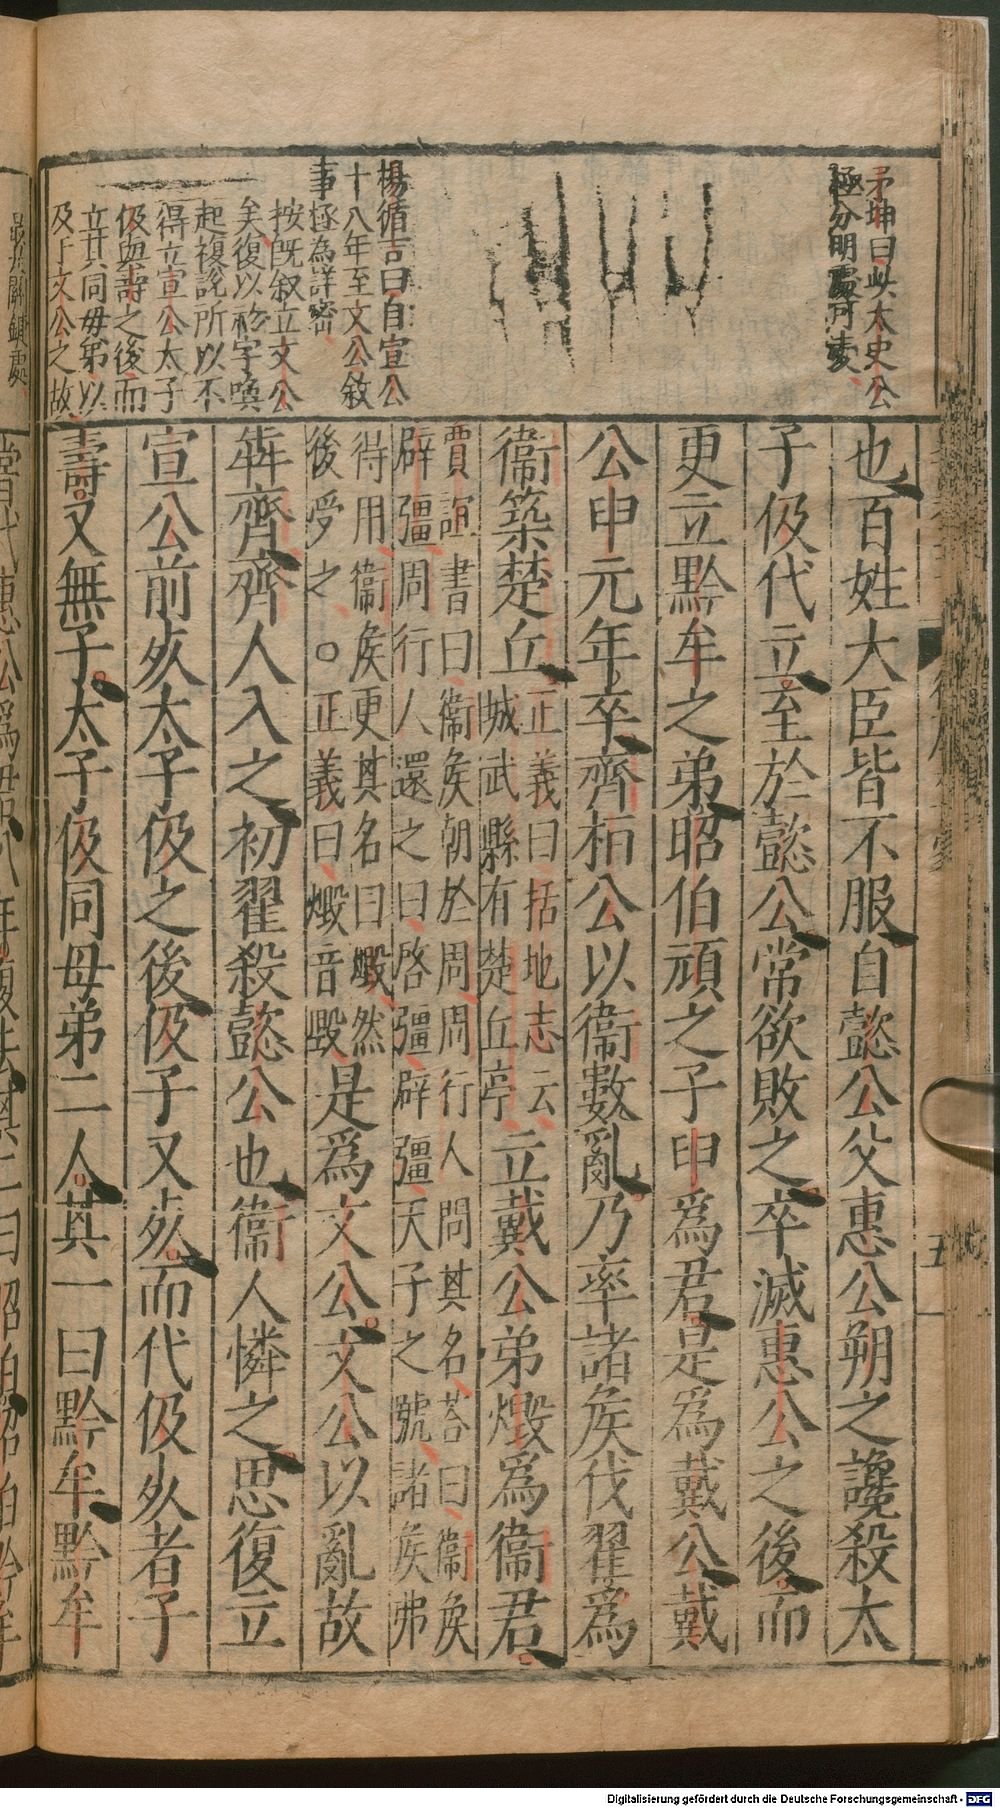 茅坤曰此太史公
極分明處可書
楊循吉曰自宣公
十八年至文公敘
事極為詳密
按既叙立文公
矣復以初字喚
起複說所以不
得立宣公太子
伋與壽之後而
立其同母弟以
及于文公之故
也百姓大臣皆不服自懿公父惠公朔之讒殺太
子伋代立至於懿公常欲敗之卒滅惠公之後而
更立黔牟之弟昭伯頑之子申爲君是爲戴公戴
公申元年卒齊桓公以衞數亂乃率諸侯伐翟爲
衞築楚丘
正義曰括地志云
城武縣有楚丘亭
立戴公弟燬爲衞君
賈誼書曰衞侯朝於周周行人問其名荅曰衞侯
辟彊周行人還之曰啓彊辟彊天子之號諸侯弗
得用衞侯更其名曰燬然
後受之○正義曰燬音毀
是爲文公文公以亂故
犇齊齊人入之初翟殺懿公也衞人憐之思復立
宣公前死太子伋之後伋子又死而代伋死者子
壽又無子太子伋同母弟二人其一曰黔牟黔牟
五
Digitalisierung gefördert durch die Deutsche Forschungsgemeinschaft - DFG